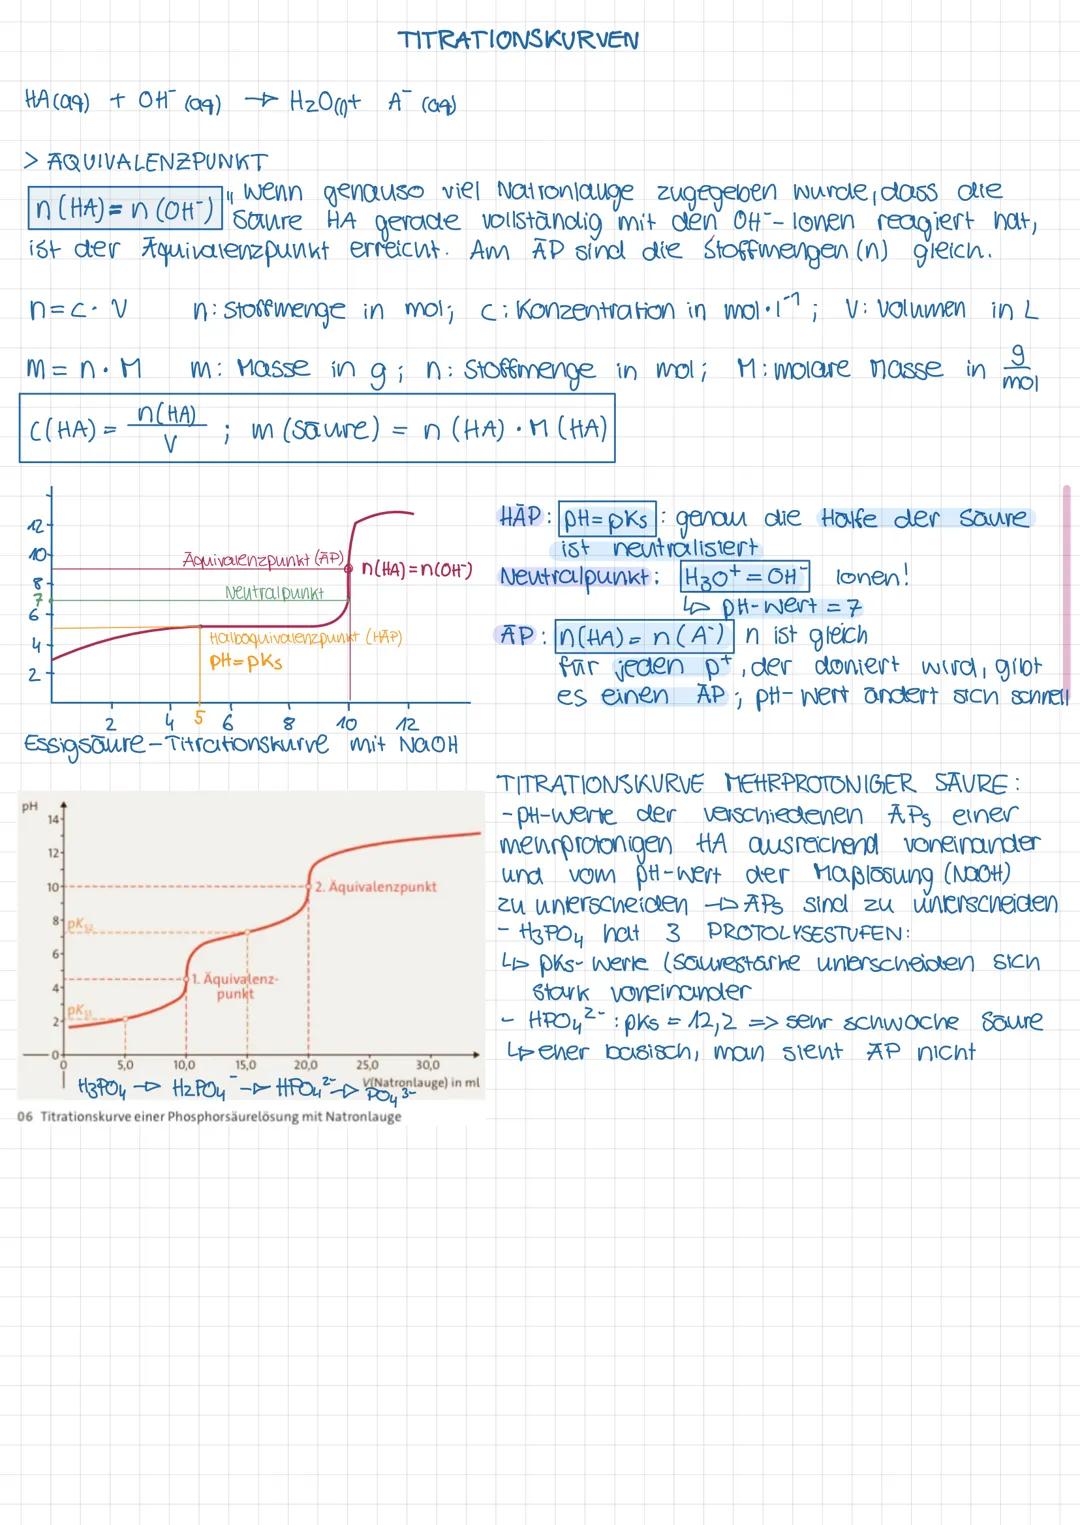 TITRATIONSKURVEN
HA(aq) + OH⁻(aq) → H₂O(l) + A⁻(aq)
> ÄQUIVALENZPUNKT
n(HA) = n(OH⁻) „Wenn genauso viel Natronlauge zugegeben wurde, dass die
Säure HA gerade vollständig mit den OH⁻-Ionen reagiert hat,
ist der Äquivalenzpunkt erreicht. Am ÄP sind die Stoffmengen (n) gleich.
n = c · V n: Stoffmenge in mol; c: Konzentration in mol·l⁻¹; V: Volumen in L
m = n · M m: Masse in g; n: Stoffmenge in mol; M: molare Masse in g/mol
c(HA) = n(HA)/V ; m(Säure) = n(HA) · M(HA)
12
10
8
7
6
4
2
Äquivalenzpunkt (ÄP)
n(HA)=n(OH⁻)
Neutralpunkt
Halbäquivalenzpunkt (HÄP)
pH=pKs
2 4 5 6 8 10 12
Essigsäure-Titrationskurve mit NaOH
HÄP: pH=pKs : genau die Hälfte der Säure
ist neutralisiert
Neutralpunkt: H₃O⁺ = OH⁻ Ionen!
↳ pH-Wert = 7
ÄP: n(HA) = n(A⁻) n ist gleich
für jeden p⁺, der doniert wird, gibt
es einen ÄP; pH-Wert ändert sich schnell
TITRATIONSKURVE MEHRPROTONIGER SÄURE:
- pH-Werte der verschiedenen ÄPs einer
mehrprotonigen HA ausreichend voneinander
und vom pH-Wert der Maßlösung (NaOH)
zu unterscheiden → ÄPs sind zu unterscheiden
- H₃PO₄ hat 3 PROTOLYSESTUFEN:
↳ pKs-Werte (Säurestärke unterscheiden sich
stark voneinander
- HPO₄²⁻: pKs = 12,2 => sehr schwache Säure
↳ eher basisch, man sieht ÄP nicht
pH
14
12
10
8
6
4
2
0
2. Äquivalenzpunkt
pKS2
1. Äquivalenz-
punkt
pKS1
0 5,0 10,0 15,0 20,0 25,0 30,0
V(Natronlauge) in ml
H₃PO₄ → H₂PO₄⁻ → HPO₄²⁻ → PO₄³⁻
06 Titrationskurve einer Phosphorsäurelösung mit Natronlauge